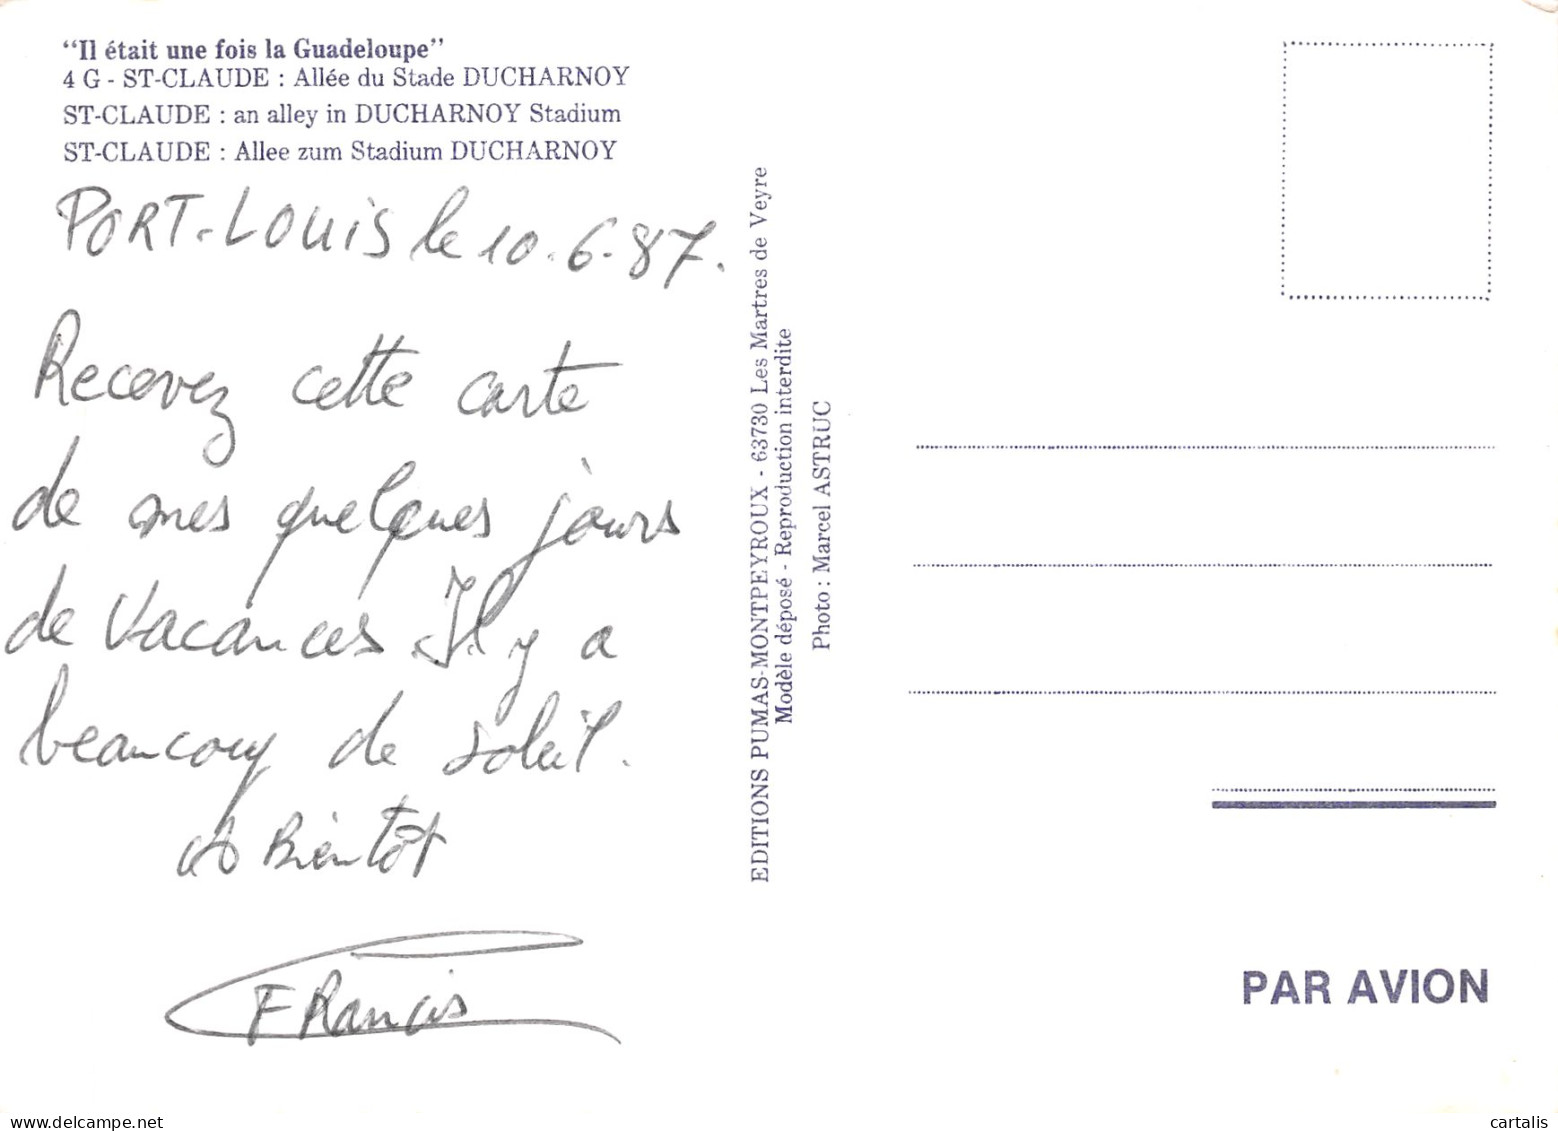 "Il était une fois la Guadeloupe"
4 G - ST-CLAUDE : Allée du Stade DUCHARNOY
ST-CLAUDE : an alley in DUCHARNOY Stadium
ST-CLAUDE : Allee zum Stadium DUCHARNOY
PORT-LOUIS le 10.6.87.
Recevez cette carte
de mes quelques jours
de vacances. Il y a
beaucoup de soleil.
A Bientôt
FRancis
EDITIONS PUMAS-MONTPEYROUX - 63730 Les Martres de Veyre
Modèle déposé - Reproduction interdite
Photo : Marcel ASTRUC
PAR AVION
delcampe.net
cartalis